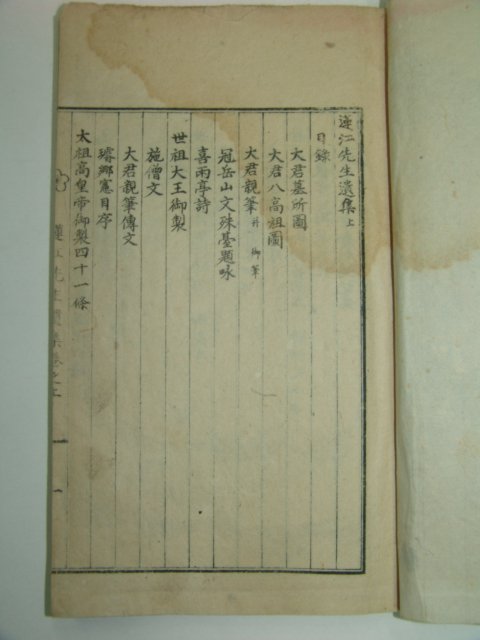 蓮江先生遺集上
目錄
大君墓所圖
大君八高祖圖
大君親筆 幷 御筆
冠岳山文殊臺題咏
喜雨亭詩
世祖大王御製
施僧文
大君親筆傳文
璿鄉憲目序
太祖高皇帝御製四十一條
蓮江先生遺集卷之上
一